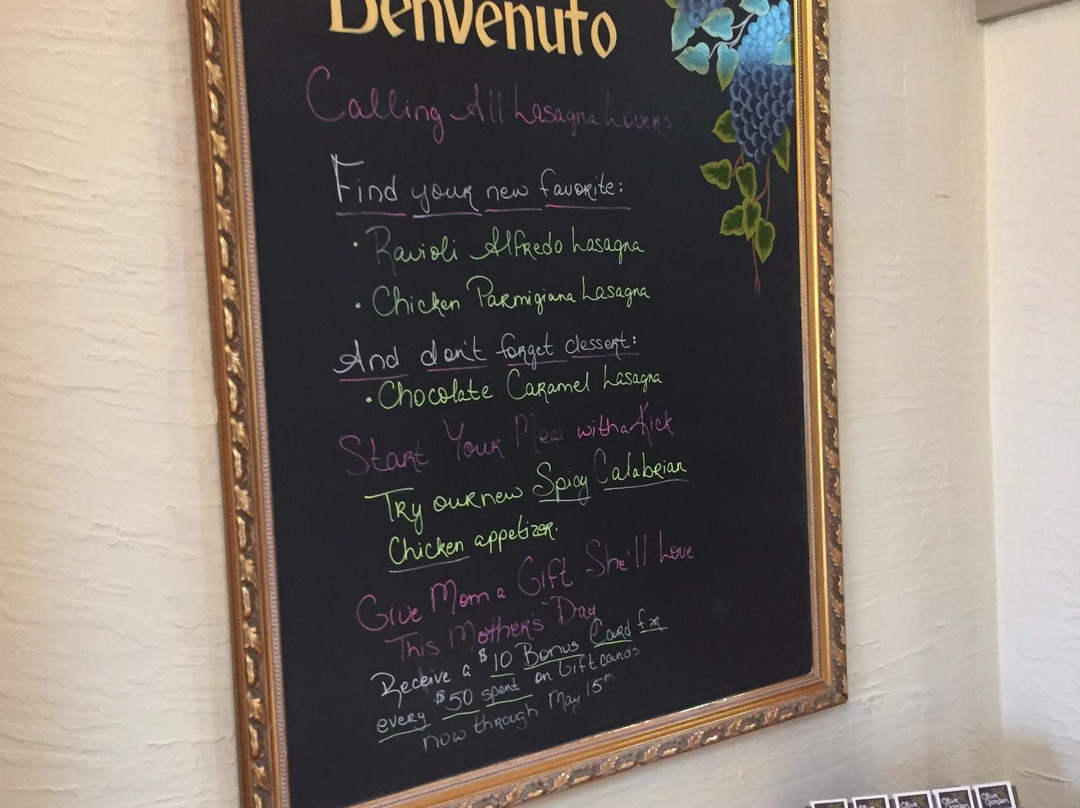 Benvenuto
Calling All Lasagna Lovers
Find your new favorite:
• Ravioli Alfredo Lasagna
• Chicken Parmigiana Lasagna
And don't forget dessert:
• Chocolate Caramel Lasagna
Start Your Meal with a Kick
Try our new Spicy Calabrian
Chicken appetizer.
Give Mom a Gift She'll Love
This Mother's Day
Receive a $10 Bonus Card for
every $50 spent on Gift cards
now through May 15th
Olive Garden
Olive Garden